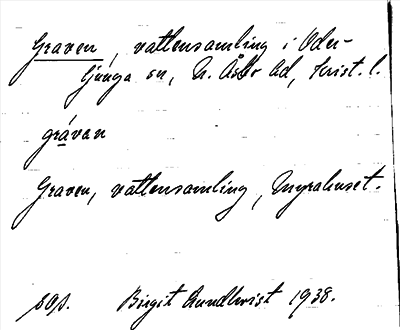 Graven, vattensamling i Oder-
ljunga sn, N. Åsbo hd, Krist. l.
grávan
Graven, vattensamling, Myrahuset.
sap. Birgit Rundkvist 1938.